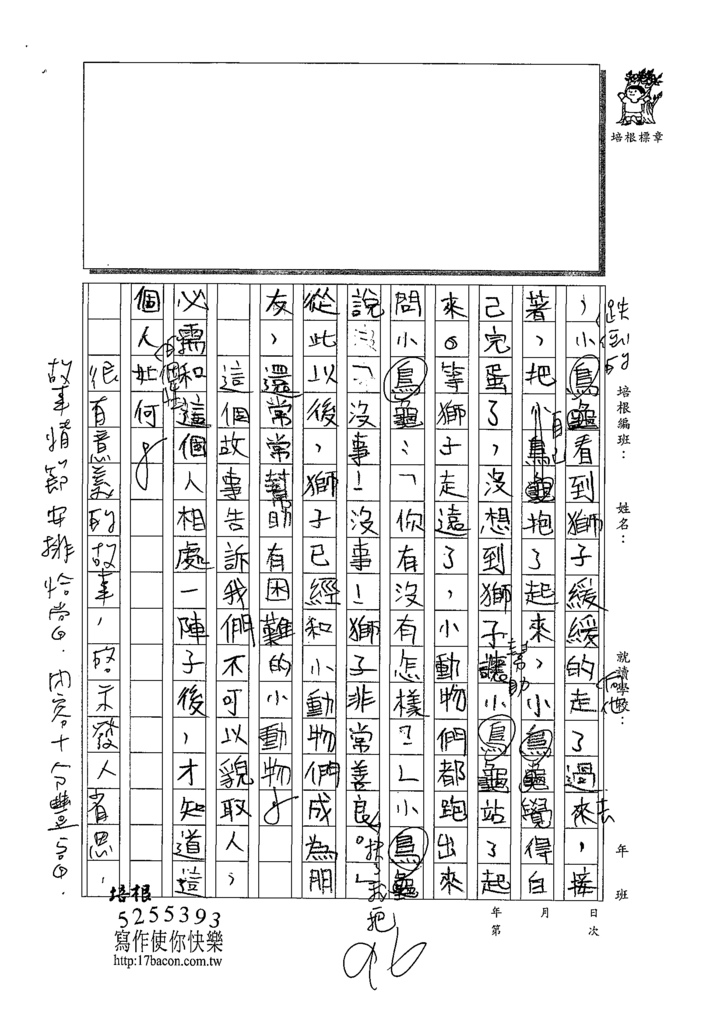 培根標章
培根編班：
姓名：
就讀學校：
年 班
跌倒的
，小鳥龜看到獅子緩緩的走了過來，接
向他
去
著，把小鳥龜抱了起來，小鳥龜覺得自
自己
己完蛋了，沒想到獅子讓小鳥龜站了起
幫助
來。等獅子走遠了，小動物們都跑出來
問小鳥龜：「你有沒有怎樣？」小鳥龜
說「沒事！沒事！獅子非常善良。」
從此以後，獅子已經和小動物們成為朋
友，還常常幫助有困難的小動物。
這個故事告訴我們不可以貌取人，
必需和這個人相處一陣子後，才知道這
個人如何。
很有意義的故事，啟示發人省思，
故事情節安排恰當，內容十分豐富。
96
年 月 日
第 次
培根
5255393
寫作使你快樂
http:17bacon.com.tw